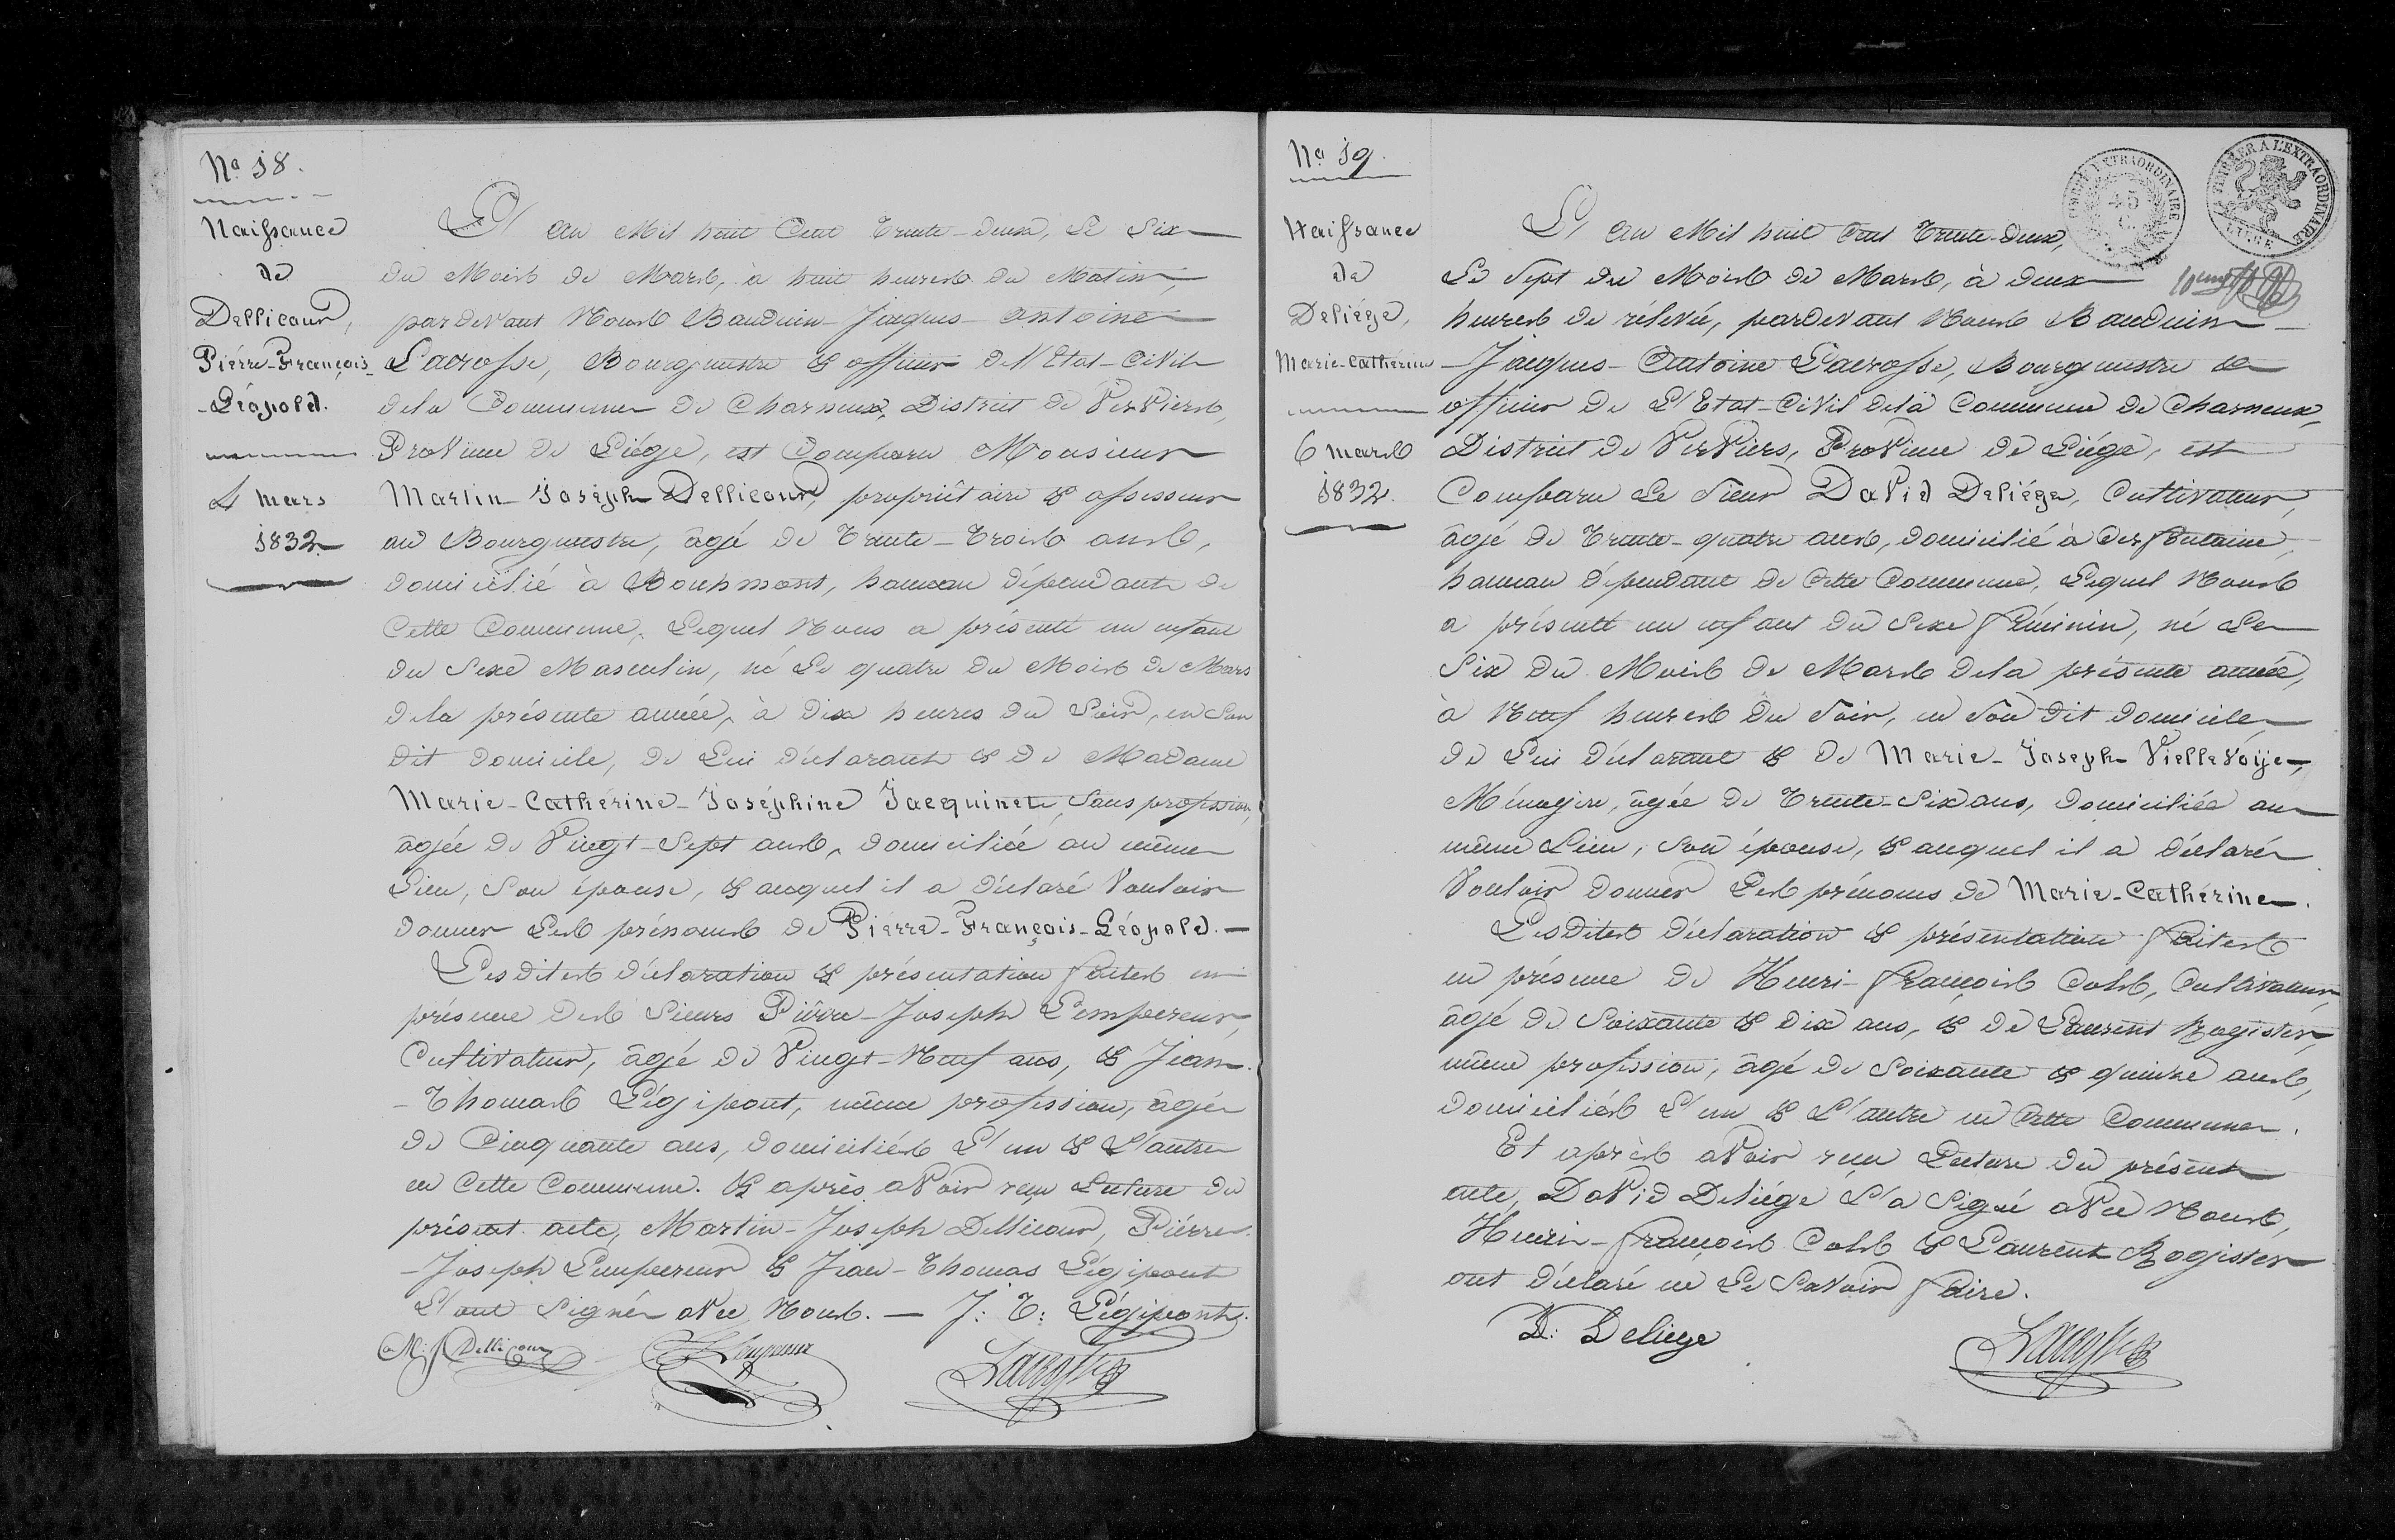 Nº 18.
Naissance
de
Dellicour,
Piérre-François
-Léopold.
4 mars
1832
L'an Mil huit Cent Trente-deux, Le Six
du Mois de Mars, à huit heures du Matin,
pardevant Nous Bauduin-Jacques-Antoine
Lacrosse, Bourgmestre & officier de l'Etat-Civil
dela Commune de Charneux, District de Verviers,
Province de Liége, est Comparu Monsieur
Martin-Joséph Dellicour, propriétaire & assesseur
au Bourgmestre, âgé de Trente-Trois ans,
domicilié à Bouhmont, hameau dépendant de
Cette Commune, Lequel Nous a présenté un enfant
du Sexe Masculin, né Le quatre du Mois de Mars
dela présente année, à dix heures du Soir, en Son
dit domicile, de Lui déclarant & de Madame
Marie-Cathérine-Joséphine Jacquinet, Sans profession,
âgée de Vingt-Sept ans, domiciliée au même
Lieu, Son épouse, & auquel il a déclaré Vouloir
donner Les prénoms de Piérre-François-Léopold.
Lesdites déclaration & présentation faites en
présence des Sieurs Piérre-Joseph Lempereur,
Cultivateur, âgé de Vingt-Neuf ans, & Jean-
-Thomas Légipont, même profession, âgé
de Cinquante ans, domiciliés L'un & L'autre
en Cette Commune. & après avoir reçu Lecture du
présent acte, Martin-Joseph Dellicour, Piérre-
-Joseph Lempereur & Jean-Thomas Légipont
L'ont Signé avec Nous. — J: T: Légipont
M: J Dellicour
Lempereur
Lacrosse
Nº 19.
Naissance
de
Deliége,
Marie-Cathérine
6 mars
1832.
TIMBRE EXTRAORDINAIRE
45
C.
A TIMBRER A L'EXTRAORDINAIRE
LIEGE
L'an Mil huit Cent Trente-deux,
Le Sept du Mois de Mars, à deux
heures de rélevée, pardevant Nous Bauduin-
-Jacques-Antoine Lacrosse, Bourgmestre &
officier de L'Etat-Civil dela Commune de Charneux,
District de Verviers, Province de Liége, est
Comparu Le Sieur David Deliége, Cultivateur,
âgé de Trente-quatre ans, domicilié à Cerfontaine,
hameau dépendant de Cette Commune, Lequel Nous
a présenté un enfant du Sexe féminin, né Le
Six du Mois de Mars dela présente année,
à Neuf heures du Soir, en Son dit domicile,
de Lui déclarant & de Marie-Joseph Viellevoÿe,
Ménagère, âgée de Trente-Six ans, domiciliée au
même Lieu, Son épouse, & auquel il a déclaré
Vouloir donner Les prénoms de Marie-Cathérine.
Lesdites déclaration & présentation faites
en présence de Henri-François Cols, Cultivateur,
âgé de Soixante & dix ans, & de Laurent Rogister,
même profession, âgé de Soixante & quinze ans,
domiciliés L'un & L'autre en Cette Commune.
Et après avoir reçu Lecture du présent
acte, David Deliége L'a Signé avec Nous,
Henri-François Cols & Laurent Rogister
ont déclaré ne Le Savoir faire.
D: Deliége
Lacrosse